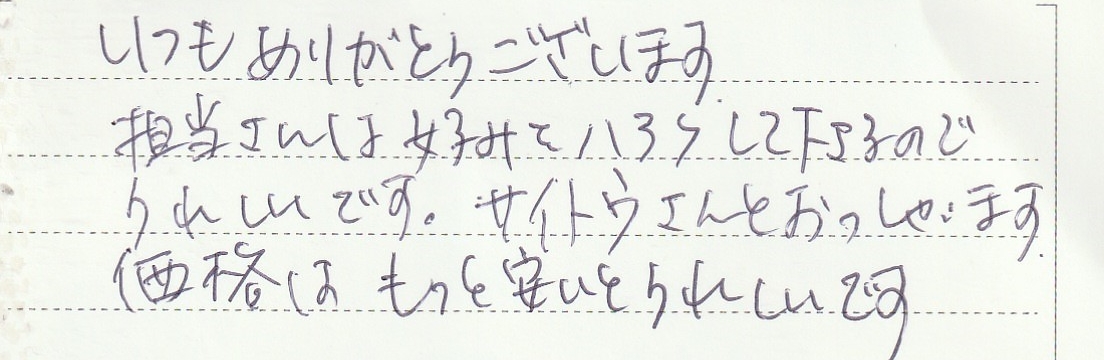 いつもありがとうございます
担当さんは好みを ハラして下さるので
うれしいです。サイトウさんとおっしゃいます
価格は もっと安いとうれしいです